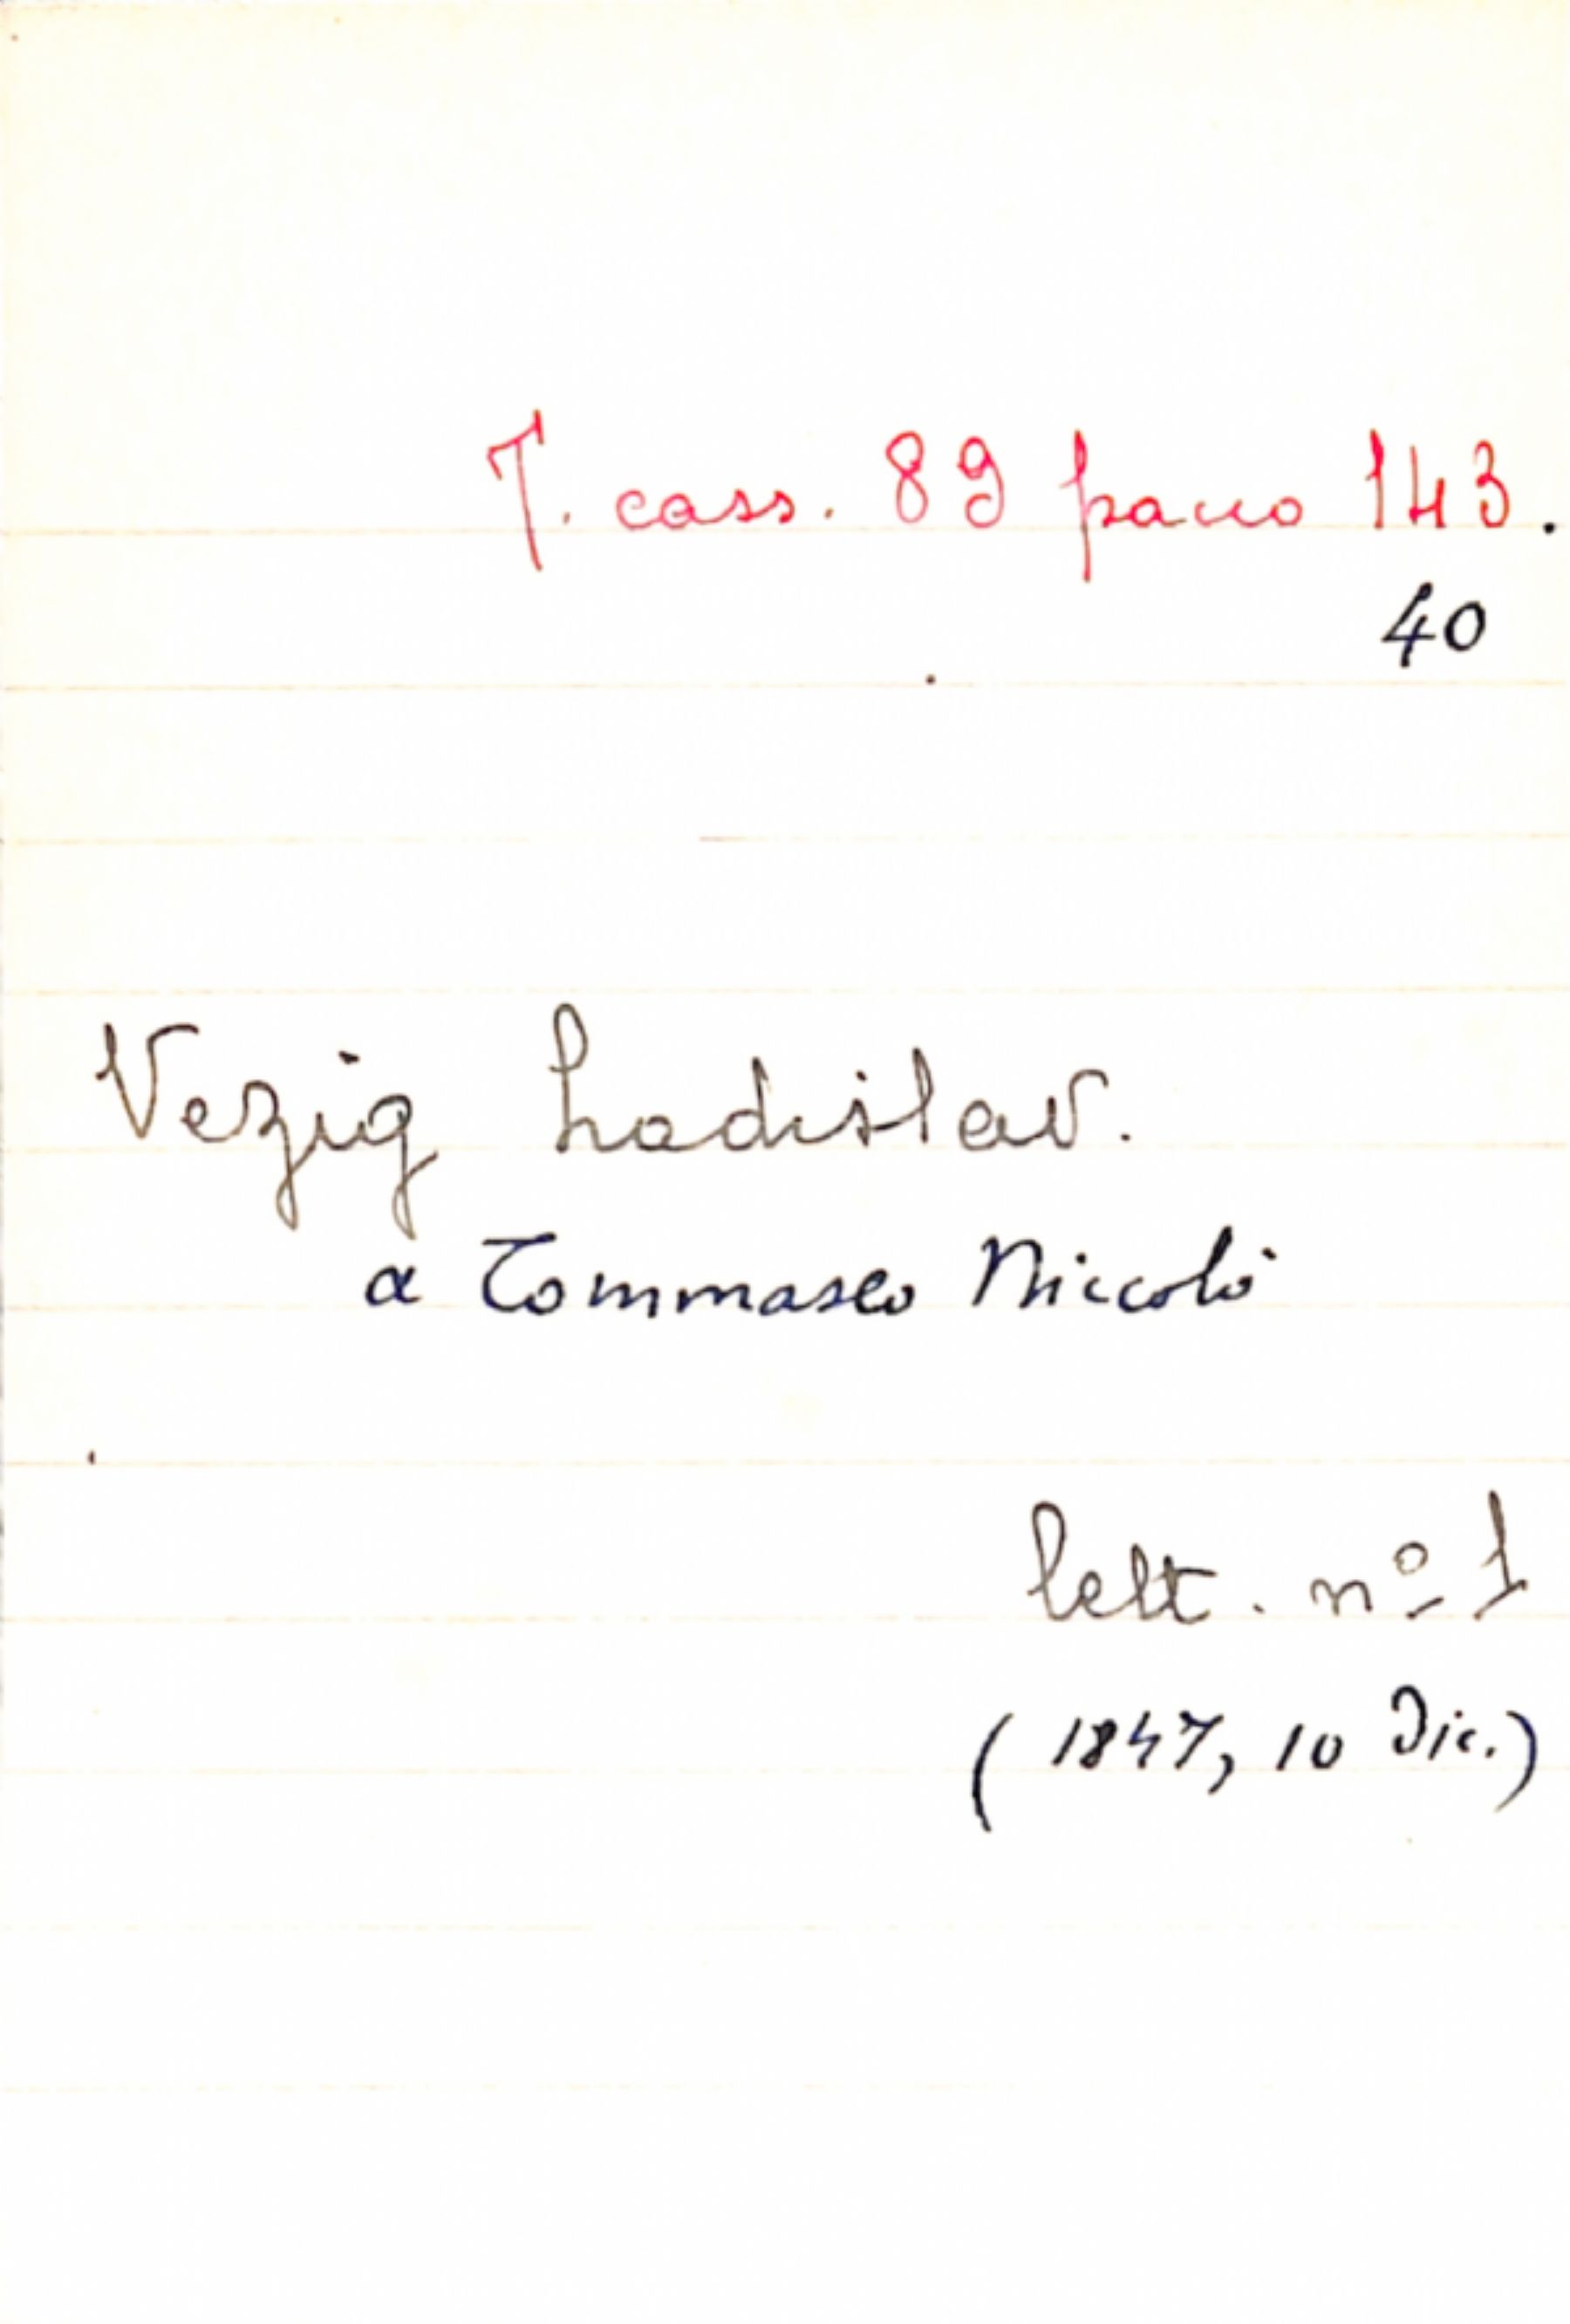 T. cass. 89 pacco 143.
40
Vezig Ladislav.
a Tommaseo Niccolò
lett. nº 1
(1847, 10 Dic.)